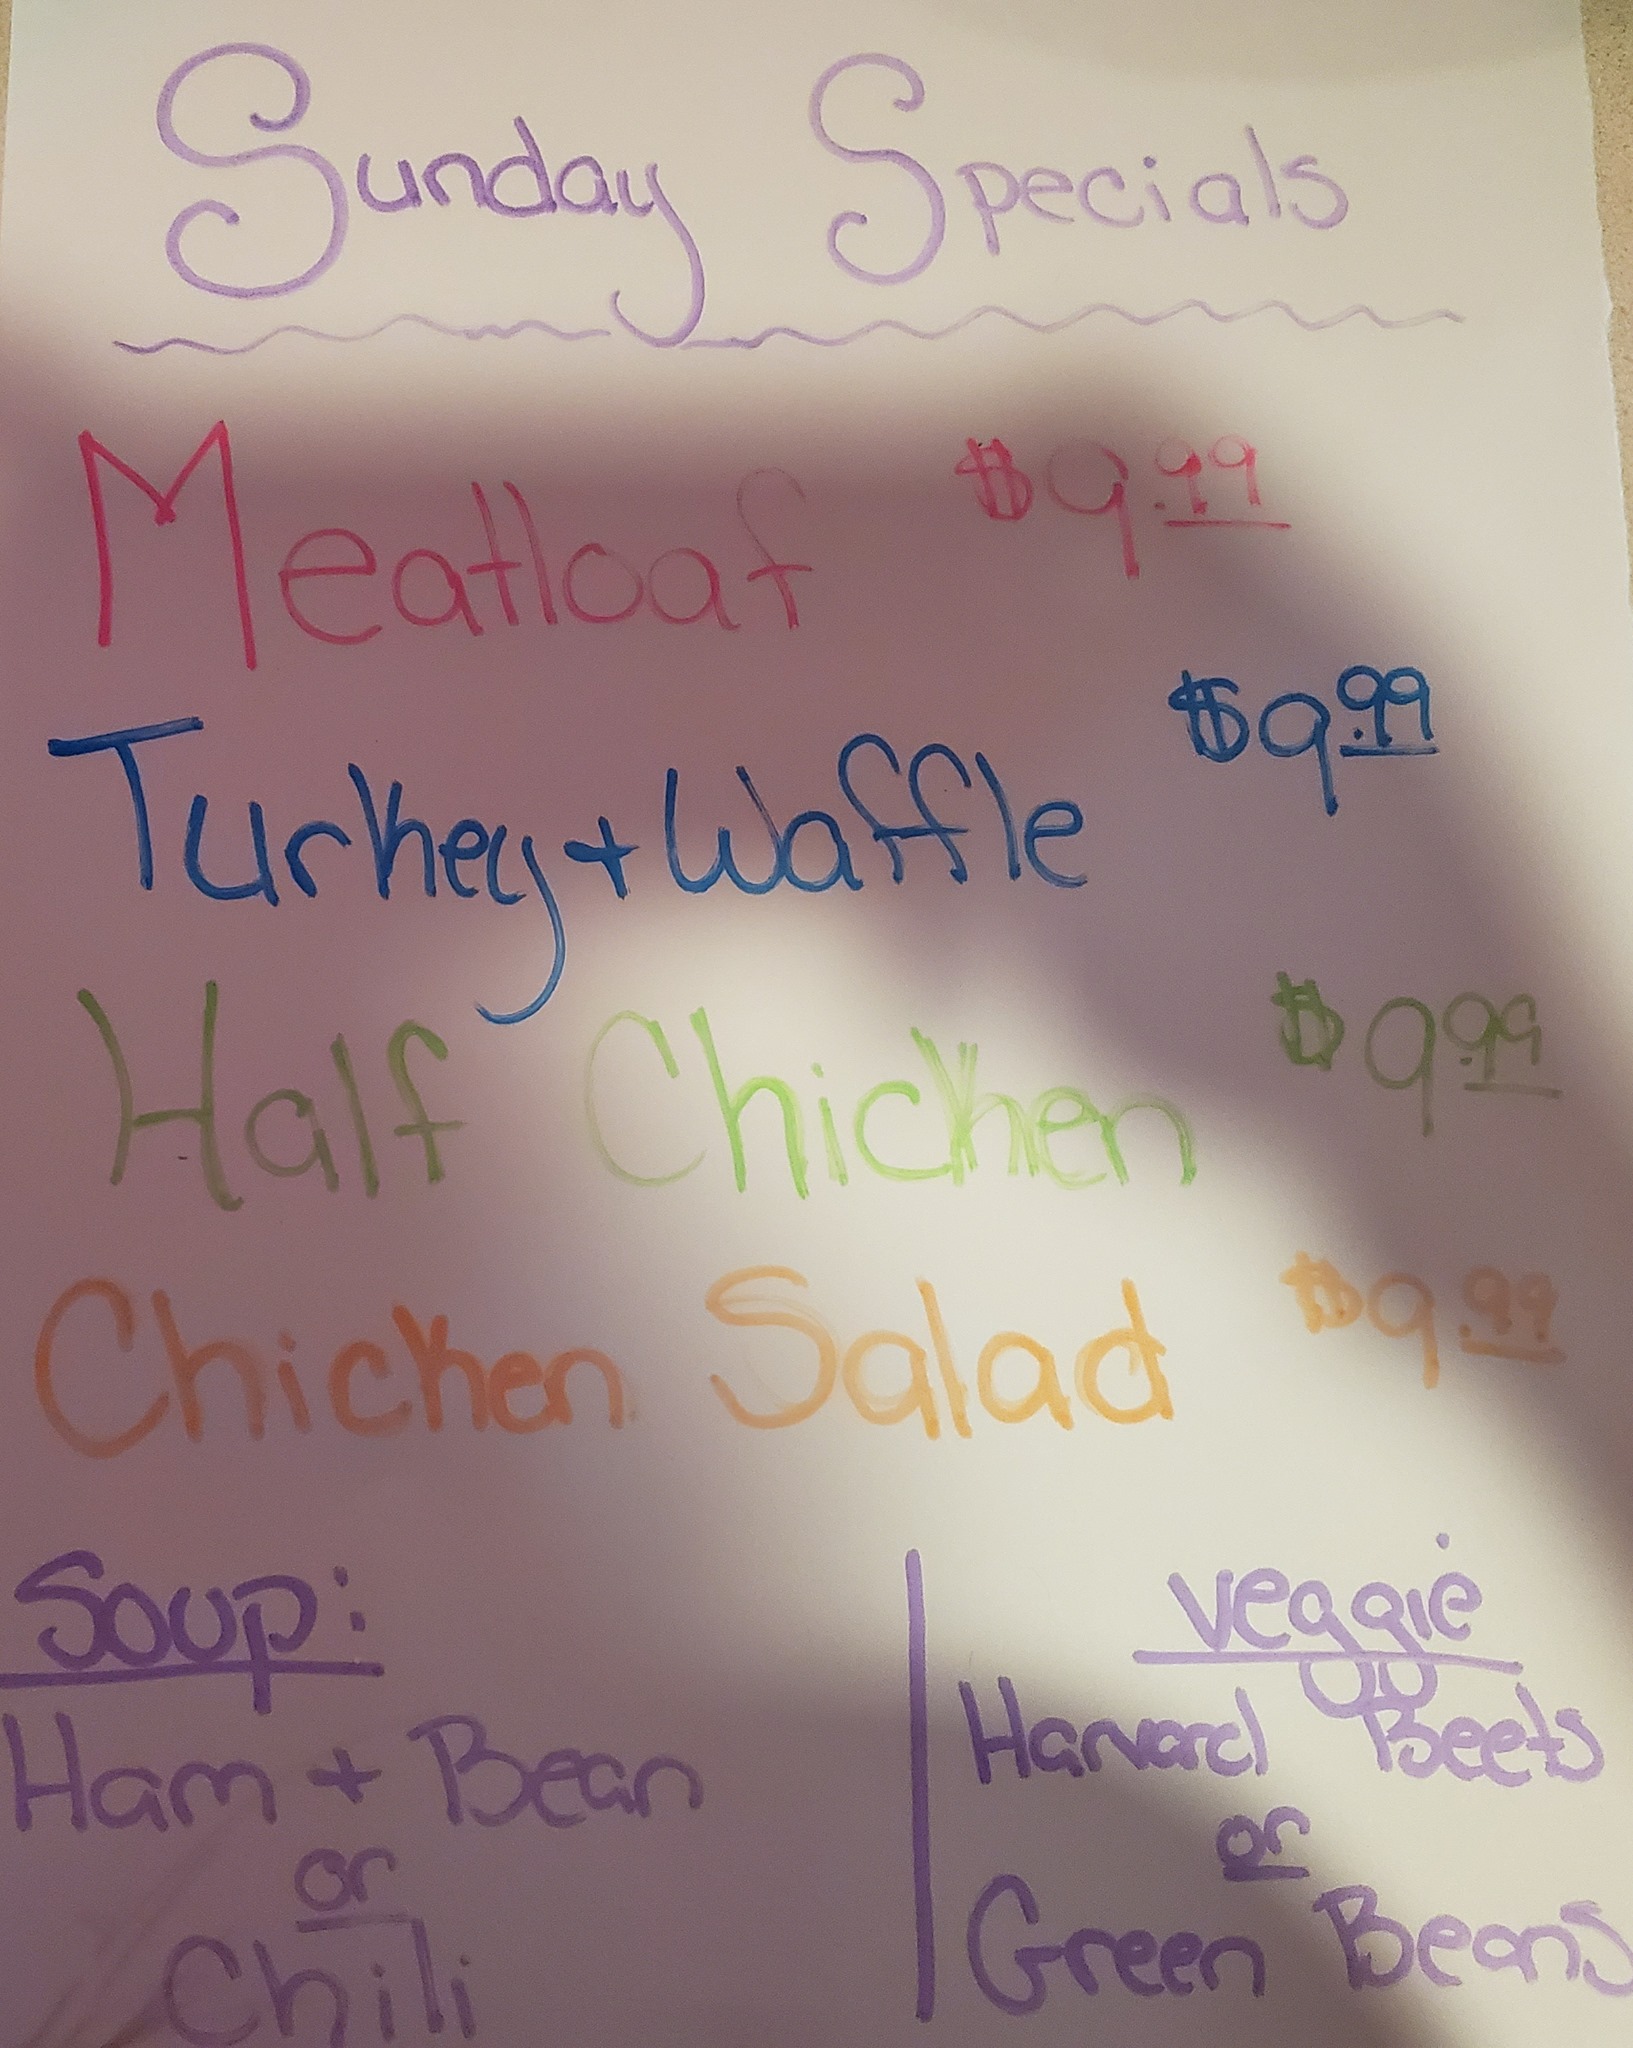 Sunday Specials
Meatloaf $9.99
Turkey + Waffle $9.99
Half Chicken $9.99
Chicken Salad $9.99
Soup:
Ham + Bean
or
Chili
veggie
Harvard Beets
or
Green Beans